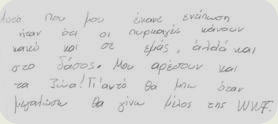 Αυτό που μου έκανε εντύπωση
ήταν ότι οι πυρκαγιές κάνουν
κακό και σε εμάς, αλλά και
στο δάσος. Μου αρέσουν και
τα ζώα! Γι'αυτό θα μην όταν
μεγαλώσω θα γίνω μέλος της WWF.